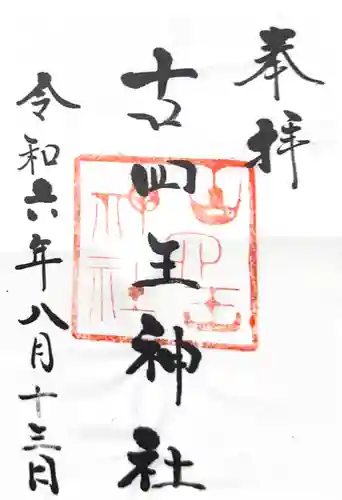 奉拝
古四王神社
令和六年八月十三日
古四王神社